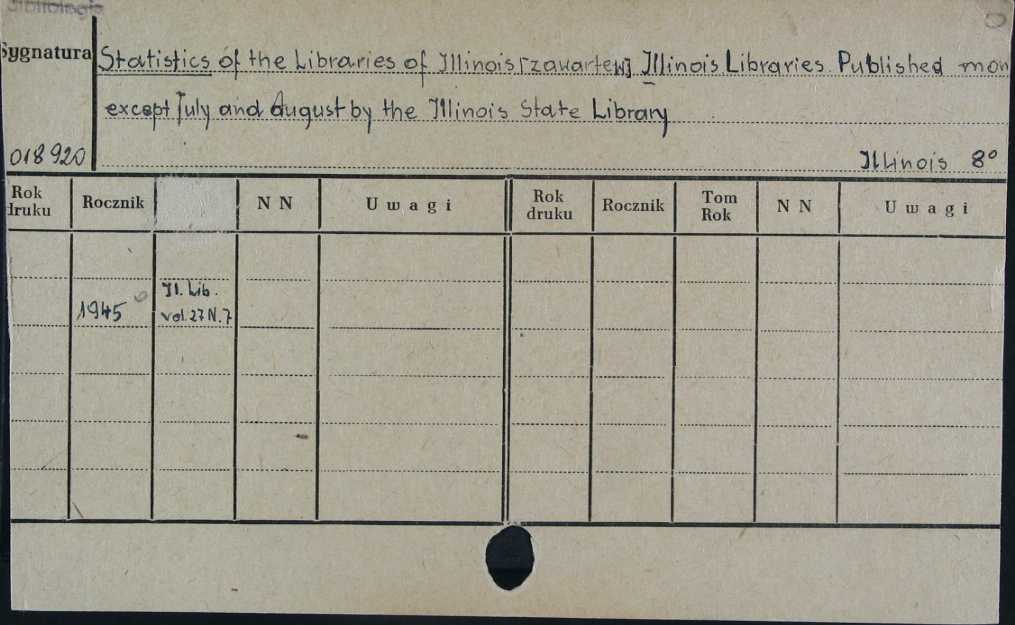 Bibliologia
Sygnatura
Statistics of the Libraries of Illinois [zawarte w] Illinois Libraries. Published mon
except July and August by the Illinois State Library
018920
Illinois 8°
Rok druku Rocznik NN Uwagi Rok druku Rocznik Tom Rok NN Uwagi
Il. Lib.
1945 vol. 27 N. 7